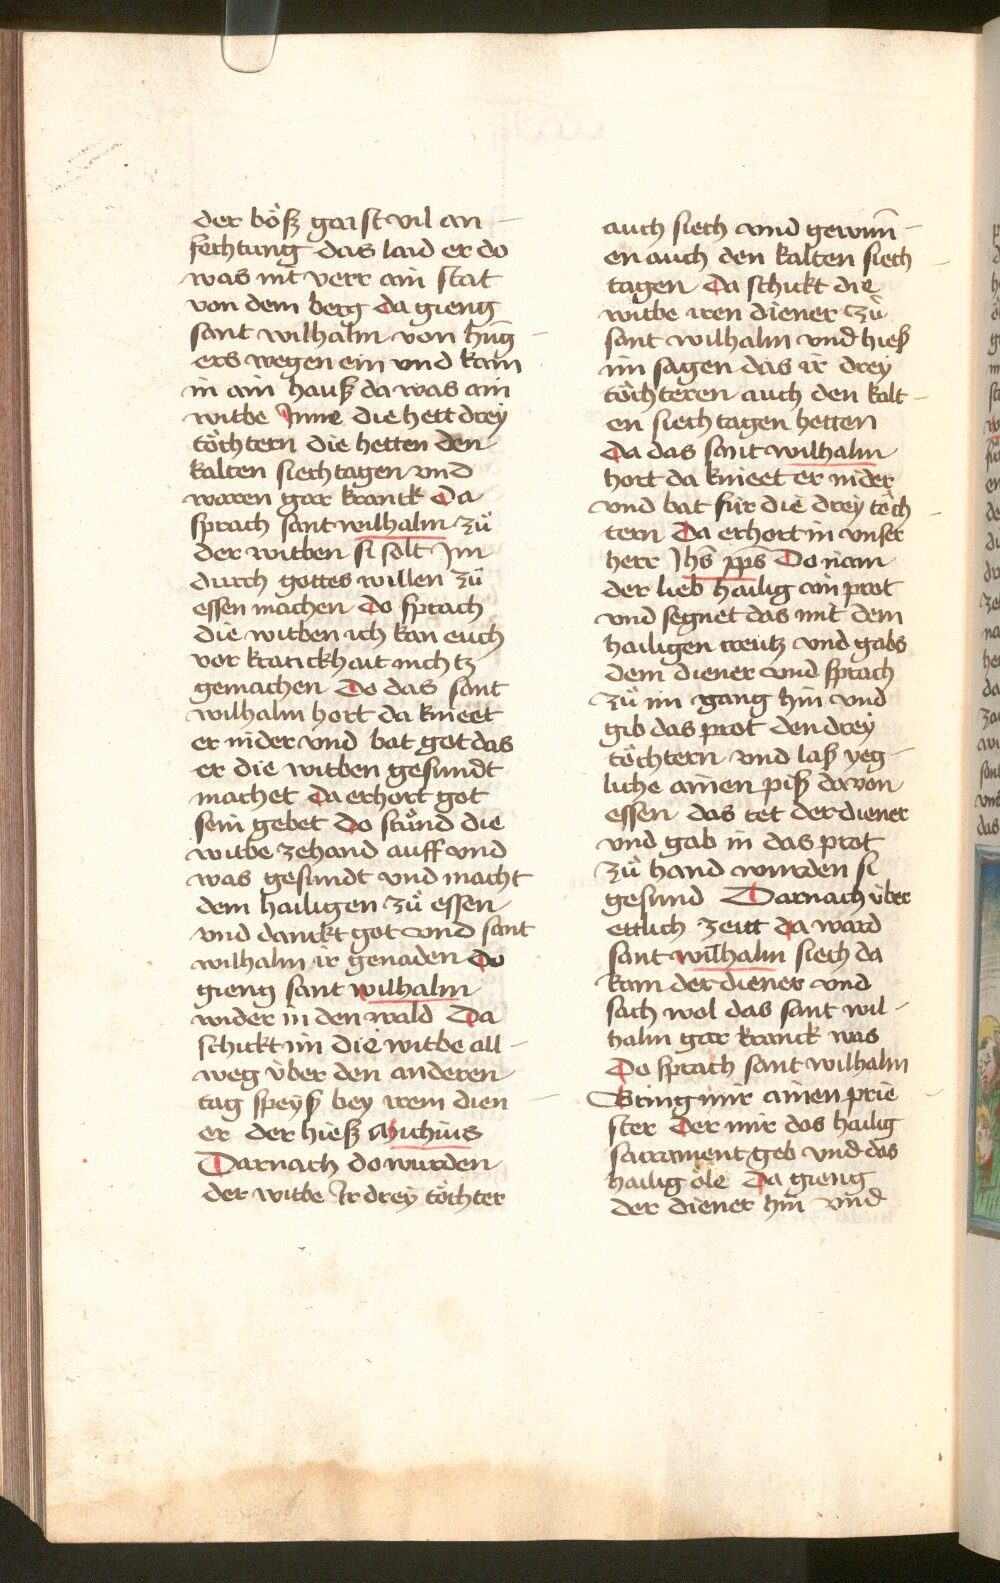 der böß gaist vil an-
fechtung das laid er do
was nit verr ain stat
von dem berg da gieng
sant wilhalm von hūg
ers wegen ein und kam
in ain hauß da was ain
witbe Inne die hett drey
töchtern die hetten den
kalten siechtagen vnd
waren gar kranck Da
sprach sant wilhalm zů
der witben si solt Im
durch gottes willen zů
essen machen do sprach
die witben ich kan euch
vor kranckhait nichtz
gemachen Do das sant
wilhalm hort da knieet
er nider vnd bat got das
er die witben gesundt
machet da erhort got
sein gebet do stůnd die
witbe zehand auff vnd
was gesundt vnd macht
dem hailigen zů essen
vnd danckt got vnd sant
wilhalm ir genaden do
gieng sant wilhalm
wider in den wald Da
schickt im die witbe all-
weg über den anderen
tag speyß bey irem dien-
er der hieß
Darnach do wurden
der witbe Ir drey töchter
auch siech vnd gewinn̄-
en auch den kalten siech-
tagen Da schickt die
witbe iren diener zů
sant wilhalm vnd hieß
im sagen das ir drey
töchteren auch den kalt-
en siechtagen hetten
Da das sant wilhalm
hort da knieet er nider
vnd bat für die drey töch-
tern Da erhort in vnser
herr Jhs̄ xp̄s Do nam
der lieb hailig ain prot
vnd segnet das mit dem
hailigen creütz vnd gabs
dem diener vnd sprach
zů im gang hin vnd
gib das prot den drey
töchtern vnd laß yeg-
liche ainen piß davon
essen das tet der diener
vnd gab in das prot
zů hand wurden si
gesund Darnach über
ettlich zeitt da ward
sant wilhalm siech da
kam der diener vnd
sach wol das sant wil-
halm gar kranck was
Do sprach sant wilhalm
Bring mir ainen prie-
ster der mir das hailig
sacrament geb vnd das
hailig öle Da gieng
der diener hin vnd